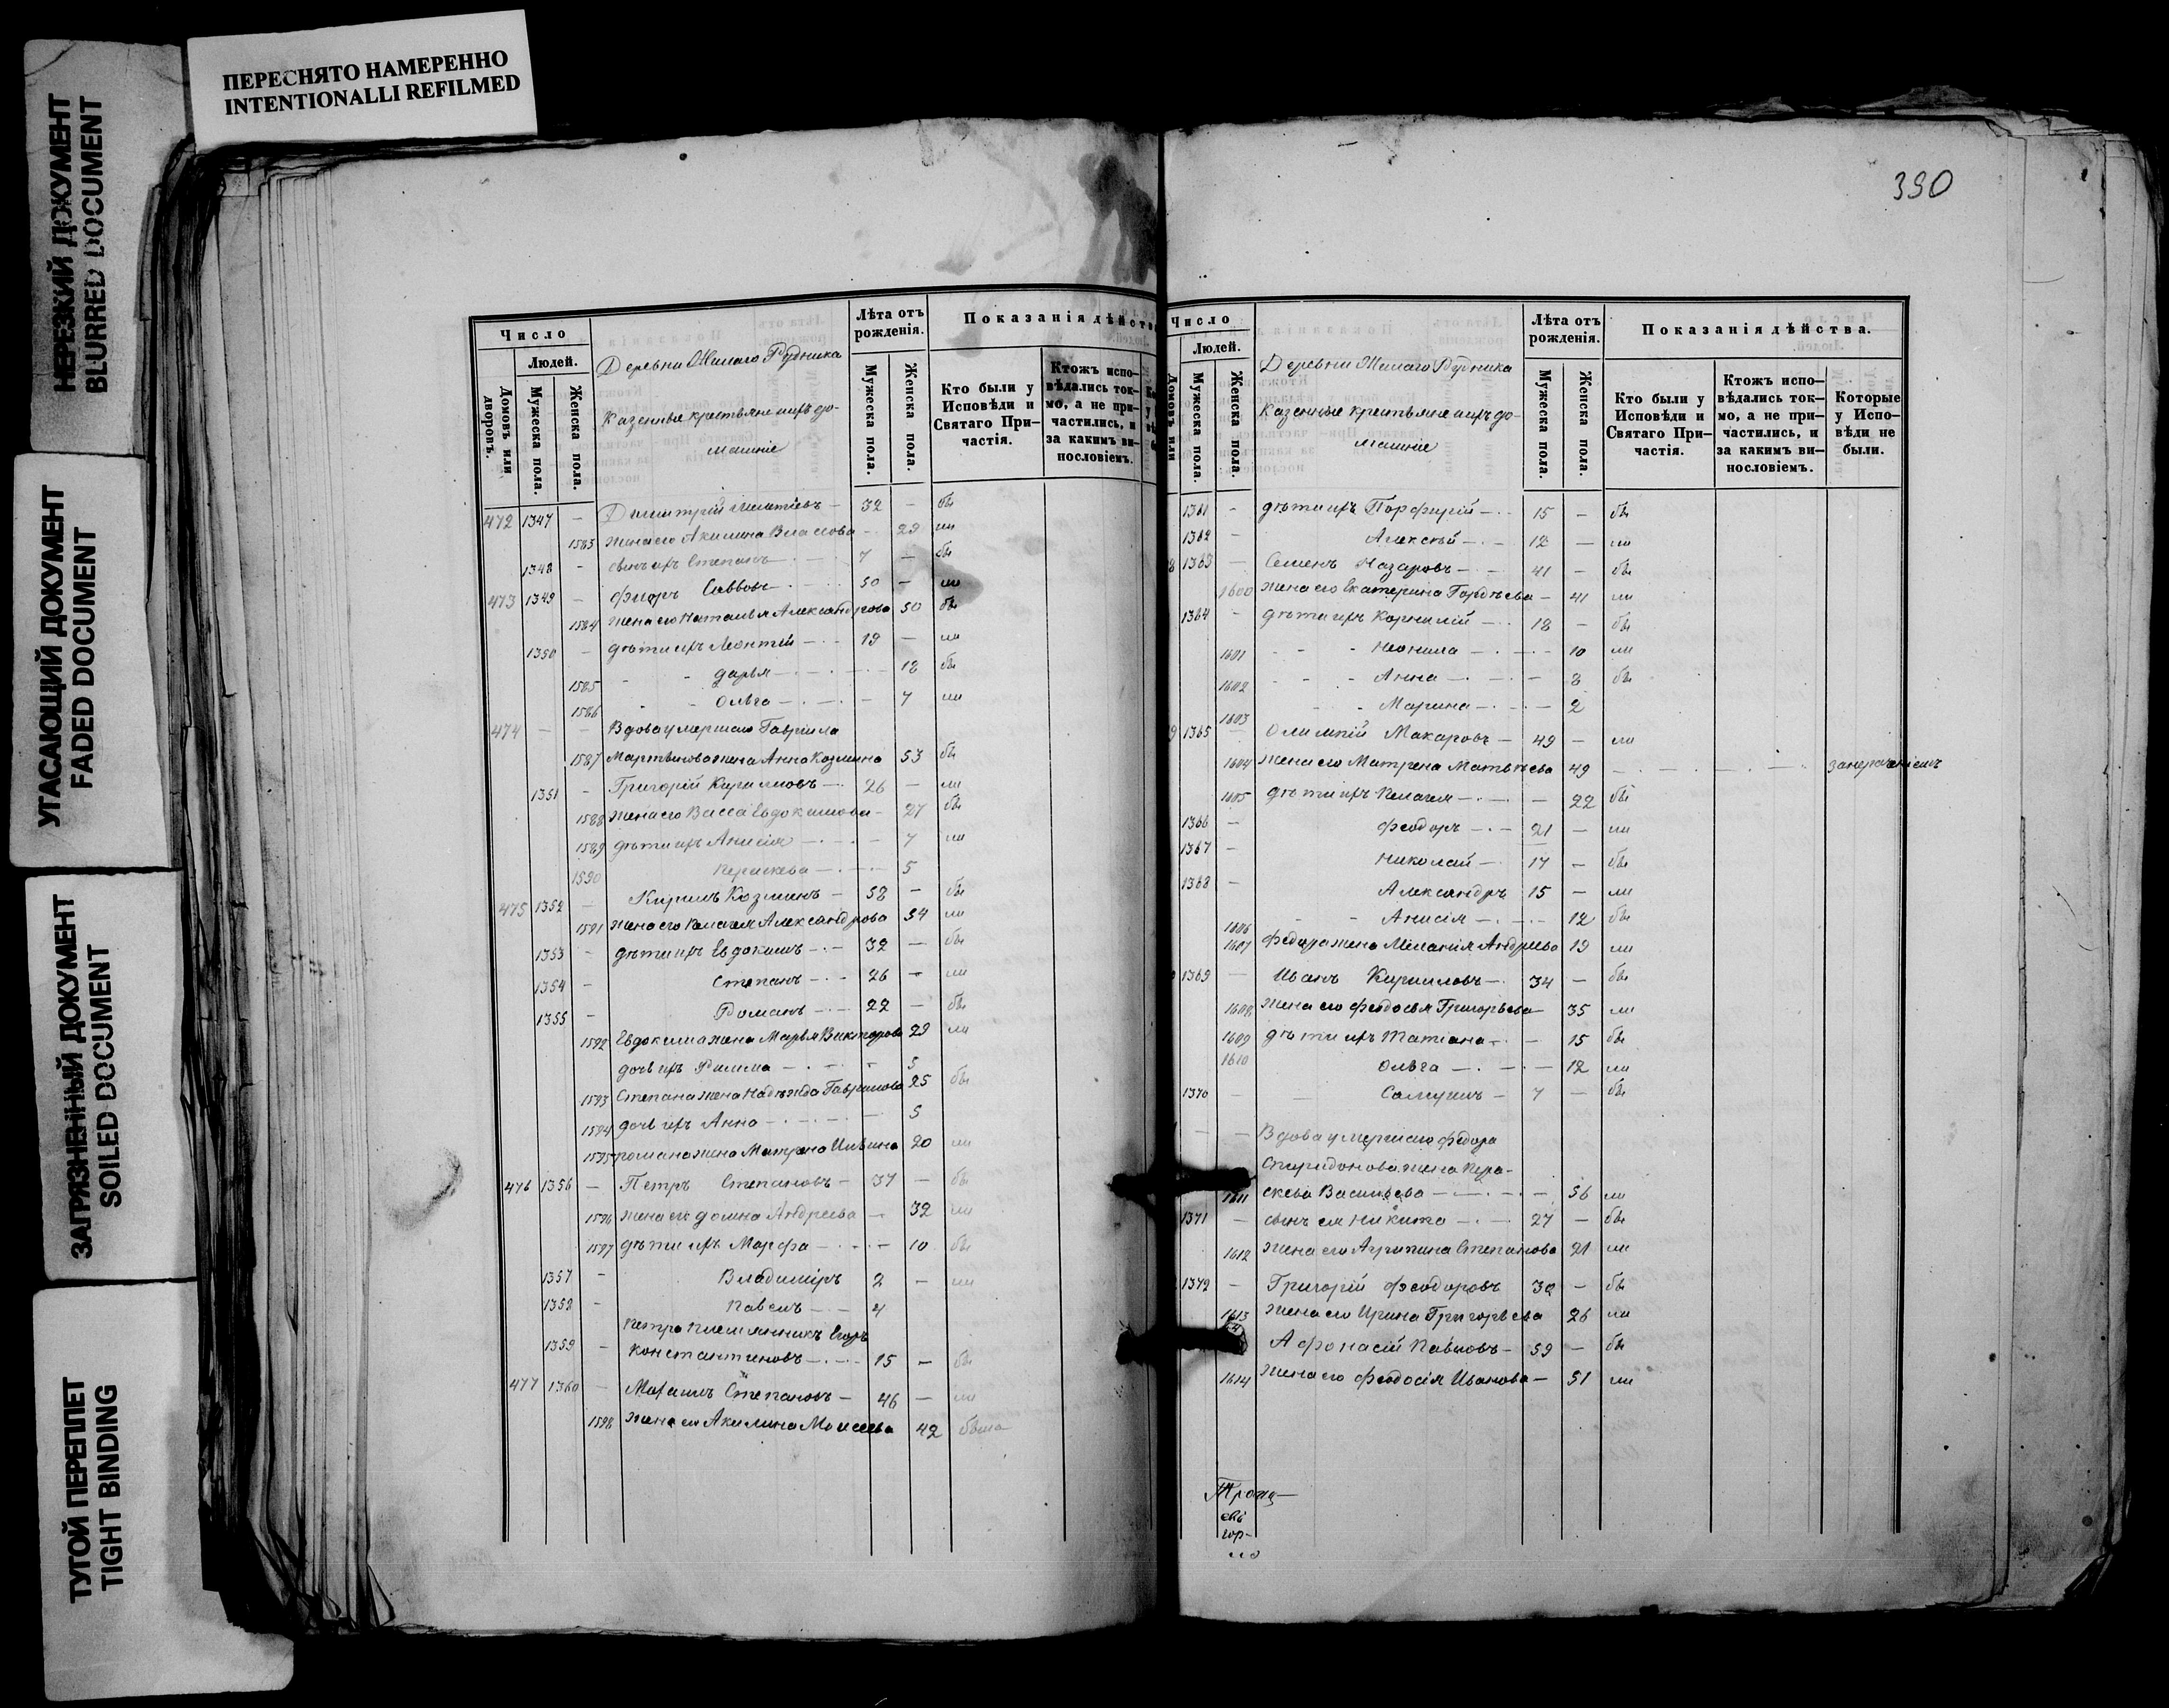 ПЕРЕСНЯТО НАМЕРЕННО
INTENTIONALLI REFILMED
НЕРЕЗКИЙ ДОКУМЕНТ
BLURRED DOCUMENT
УГАСАЮЩИЙ ДОКУМЕНТ
FADED DOCUMENT
ЗАГРЯЗНЕННЫЙ ДОКУМЕНТ
SOILED DOCUMENT
ТУГОЙ ПЕРЕПЛЕТ
TIGHT BINDING
Число
Людей.
Домовъ или дворовъ.
Мужеска пола.
Женска пола.
Деревни Малаго Рудника
Казенные крестьяне ихъ до-
машніе
Лѣта отъ рожденія.
Мужеска пола.
Женска пола.
Показанія дѣйств
Кто были у Исповѣди и Святаго При-частія.
Ктожъ испо-вѣдались ток-мо, а не при-частились, и за какимъ ви-нословіемъ.
472 1347 - Димитрій - 32 - бы
1583 жена его Акилина Власова - 29 ли
1348 - сынъ ихъ Степанъ 7 - бы
473 1349 - Саввовъ 50 - ли
1584 жена его Наталья Александрова 50 бы
1350 - дѣти ихъ Леонтій 19 - ли
1585 - - Дарья 12 бы
1586 - - Ольга - 7 ли
474 - - Вдова умершаго Гавріила
1587 Мартынова жена Анна Козмина 53 бы
1351 - Григорій Кириловъ 26 - ли
1588 жена его Васса Евдокимова - 27 бы
1589 дѣти ихъ Анисія - 7 ли
1590 Пераскева 5
475 1352 - Кирилъ Козминъ - 52 - бы
1591 жена его Пелагея Александрова 54 ли
1353 - дѣти ихъ Евдокимъ 32 - бы
1354 - Степанъ 26 - ли
1355 - Романъ 22 - бы
1592 Евдокима жена Марья Викторова 29 ли
дочь ихъ - 5
1593 Степана жена Надежда Гаврилова 25 бы
1594 дочь ихъ Анна - 5
1595 Романа жена Матрена Ильина 20 ли
476 1356 - Петръ Степановъ - 37 - бы
1596 жена его Домна Андреева - 32 ли
1597 дѣти ихъ Марфа - 10 бы
1357 - Владиміръ 2 - ли
1358 - Павелъ 4
Петра племянникъ Егоръ
1359 - Константиновъ 15 - бы
477 1360 - Степановъ - 46 - ли
1598 жена его Акилина Моисеева 42 была
390
Число
Людей.
Домовъ или
Мужеска пола.
Женска пола.
Деревни Малаго Рудника
Казенные крестьяне ихъ до-
машніе
Лѣта отъ рожденія.
Мужеска пола.
Женска пола.
Показанія дѣйства.
Кто были у Исповѣди и Святаго При-частія.
Ктожъ испо-вѣдались ток-мо, а не при-частились, и за какимъ ви-нословіемъ.
Которые у Испо-вѣди не были.
1361 - дѣти ихъ Порфирій 15 - бы
1362 - Алексѣй 12 - ли
8 1363 - Семенъ Назаровъ - 41 - бы
1600 жена его Екатерина Гордѣева - 41 ли
1364 - дѣти ихъ Корнилій 18 - бы
1601 - - - Неонила - 10 ли
1602 - - - Анна - 8 бы
1603 - - Марина - 2
9 1365 - Олимпій Макаровъ - 49 - ли
1604 жена его Матрена Матвѣева 49 - - - -
1605 дѣти ихъ Пелагея - 22 бы
1366 - Феодоръ 21 - ли
1367 - Николай 17 - бы
1368 - Александръ 15 - ли
1606 - - Анисія - 12 бы
1607 Федора жена Меланія Андреева 19 ли
1369 - Иванъ Кириловъ - 34 - бы
1608 жена его Феодосья Григорьева 35 ли
1609 дѣти ихъ Татіана - 15 бы
1610 Ольга - 12 ли
1370 - - Самуилъ - 7 - бы
- - Вдова умершаго Федора
Спиридонова жена Пера-
1611 скева Васильева - 56 ли
1371 - сынъ ея Никита 27 - бы
1612 жена его Агрипина Степанова 21 ли
1372 - Григорій Феодоровъ 30 - бы
1613 жена его Ирина Григорьева 26 ли
Афонасій Павловъ - 59 - бы
1614 жена его Феодосія Иванова - 51 ли